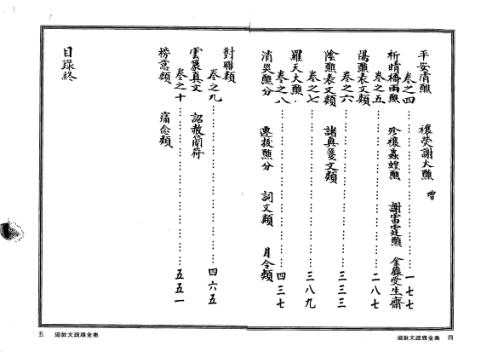 平安清醮　禳熒謝火醮　增
卷之四……一七七
祈晴禱雨醮　珍禳蟲蝗醮　謝雷霆醮　金籙受生齋
卷之五……二八七
陽醮表文類
卷之六……三三三
陰醮表文類　諸真箋文類
卷之七……三八九
羅天大醮
卷之八……四三七
消災醮分　遷拔醮分　詞文類　月令類
對聯類
卷之九……四六五
雲篆真文　詔赦簡符
卷之十……五五一
榜意類　
目錄終
五　道教文疏牒全集
道教文疏牒全集　四